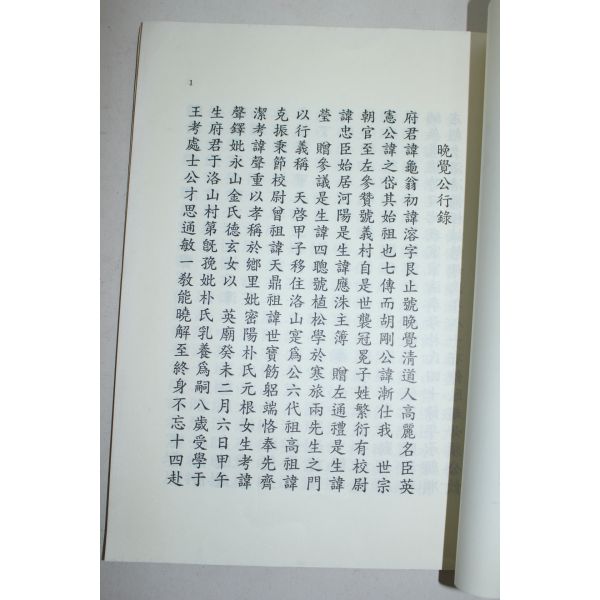 晚覺公行錄
府君諱龜翁初諱溶字艮止號晚覺清道人高麗名臣英
憲公諱之岱其始祖也七傳而胡剛公諱漸仕我 世宗
朝官至左參贊號義村自是世襲冠冕子姓繁衍有校尉
諱忠臣始居河陽是生諱應洙主簿 贈左通禮是生諱
瑩 贈參議是生諱四聰號植松學於寒旅兩先生之門
以行義稱 天啓甲子移住洛山寔爲公六代祖高祖諱
克振秉節校尉曾祖諱天鼎祖諱世寶飭躬端恪奉先齊
潔考諱聲重以孝稱於鄉里妣密陽朴氏元根女生考諱
聲鐸妣永山金氏德玄女以 英廟癸未二月六日甲午
生府君于洛山村第旣孩妣朴氏乳養爲嗣八歲受學于
王考處士公才思通敏一敎能曉解至終身不忘十四赴
1